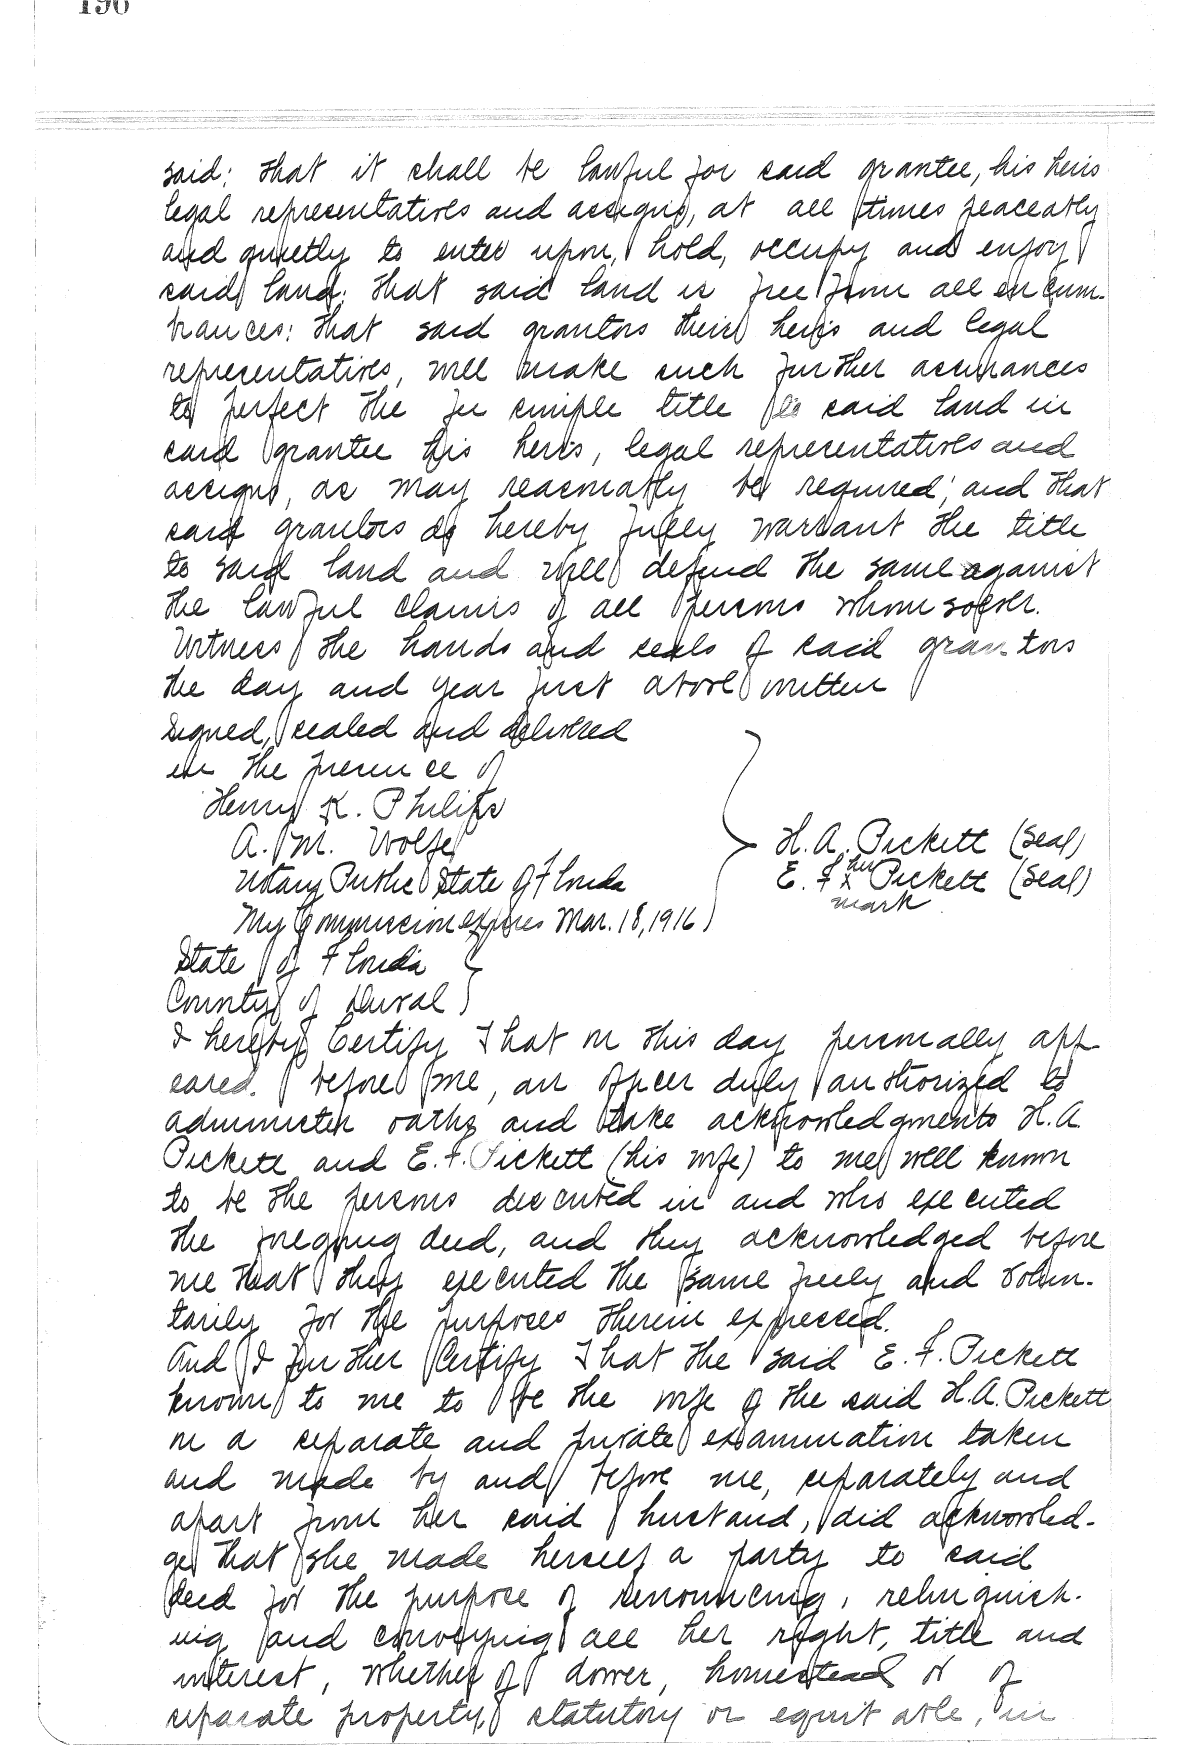 196
said: that it shall be lawful for said grantee, his heirs
legal representatives and assigns, at all times peaceably
and quietly to enter upon, hold, occupy and enjoy
said land; that said land is free from all encum-
brances: that said grantors their heirs and legal
representatives, will make such further assurances
to perfect the fee simple title to said land in
said grantee his heirs, legal representatives and
assigns, as may reasonably be required; and that
said grantors do hereby fully warrant the title
to said land and will defend the same against
the lawful claims of all persons whomsoever.
Witness the hands and seals of said grantors
the day and year first above written
Signed, sealed and delivered
in the presence of
Henry K. Philips
A. M. Wolfe
Notary Public State of Florida
My Commission expires Mar. 18, 1916
H. A. Pickett (Seal)
her
E. F. x Pickett (Seal)
mark
State of Florida
County of Duval
I hereby Certify That on this day personally app-
eared. before me, an officer duly authorized to
administer oaths and take acknowledgments H. A
Pickett and E. F. Pickett (his wife) to me well known
to be the persons described in and who executed
the foregoing deed, and they acknowledged before
me that they executed the same freely and volun-
tarily for the purposes therein expressed.
And I further Certify That the said E. F. Pickett
known to me to be the wife of the said H. A. Pickett
on a separate and private examination taken
and made by and before me, separately and
apart from her said husband, did acknowled-
ge that she made herself a party to said
deed for the purpose of renouncing, relinquish-
ing and conveying all her right, title and
interest, whether of dower, homestead or of
separate property, statutory or equitable, in